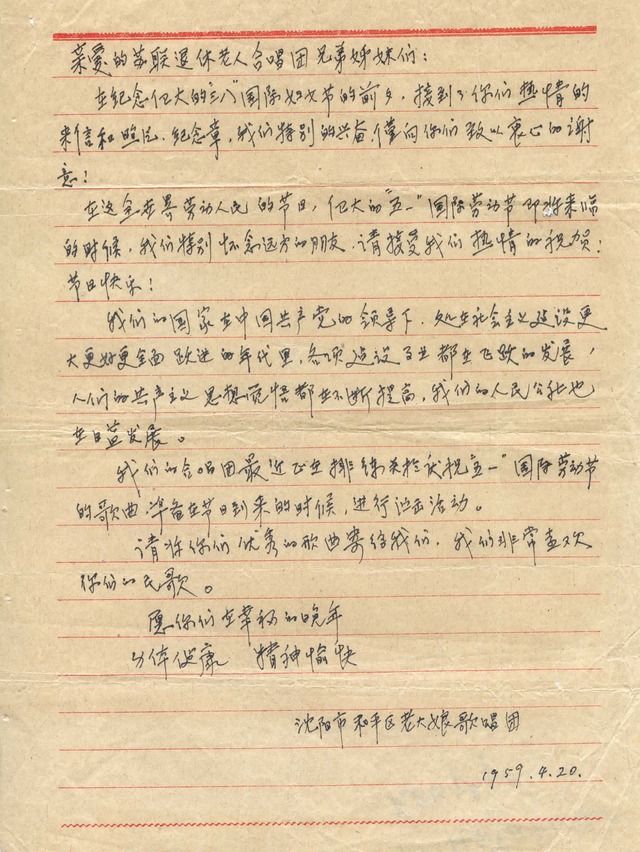 亲爱的苏联退休老人合唱团兄弟姊妹们：
在纪念伟大的"三八"国际妇女节的前夕，接到了你们热情的
来信和照片、纪念章，我们特别的兴奋，谨向你们致以衷心的谢
意！
在这全世界劳动人民的节日，伟大的"五一"国际劳动节即将来临
的时候，我们特别怀念远方的朋友，请接受我们热情的祝贺：
节日快乐！
我们的国家在中国共产党的领导下，处在社会主义建设更
大更好更全面跃进的年代里，各项建设事业都在飞跃的发展，
人们的共产主义思想觉悟都在不断提高，我们的人民公社也
在日益发展。
我们的合唱团最近正在排练关于庆祝"五一"国际劳动节
的歌曲，准备在节日到来的时候，进行演出活动。
请将你们优秀的歌曲寄给我们，我们非常喜欢
你们的民歌。
愿你们在幸福的晚年
身体健康 精神愉快
沈阳市和平区老大娘歌唱团
1959.4.20.